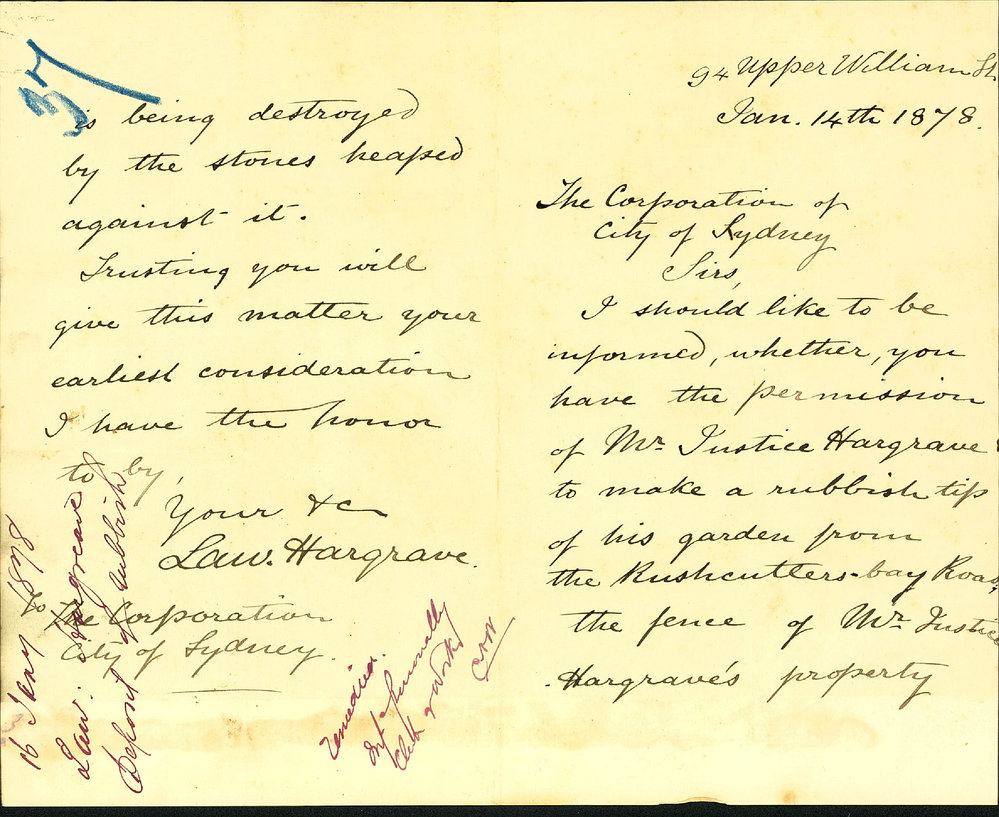 94 Upper William St
Jan. 14th 1878.
The Corporation of
City of Sydney
Sirs,
I should like to be
informed, whether, you
have the permission
of Mr. Justice Hargrave
to make a rubbish tip
of his garden from
the Rushcutters-bay Road,
the fence of Mr. Justice
Hargrave's property
37
is being destroyed
by the stones heaped
against it.
Trusting you will
give this matter your
earliest consideration
I have the honor
to by,
Your &c
Law. Hargrave.
The Corporation
City of Sydney.
16 Jany 1878
Law: Hargreave
Deposit of rubbish
remedied.
Clk of Works